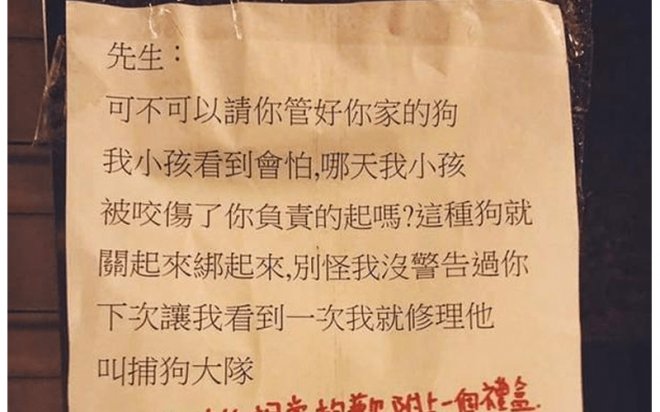 先生：
可不可以請你管好你家的狗
我小孩看到會怕,哪天我小孩
被咬傷了你負責的起嗎?這種狗就
關起來綁起來,別怪我沒警告過你
下次讓我看到一次我就修理他
叫捕狗大隊
抱歉附上一個禮盒.